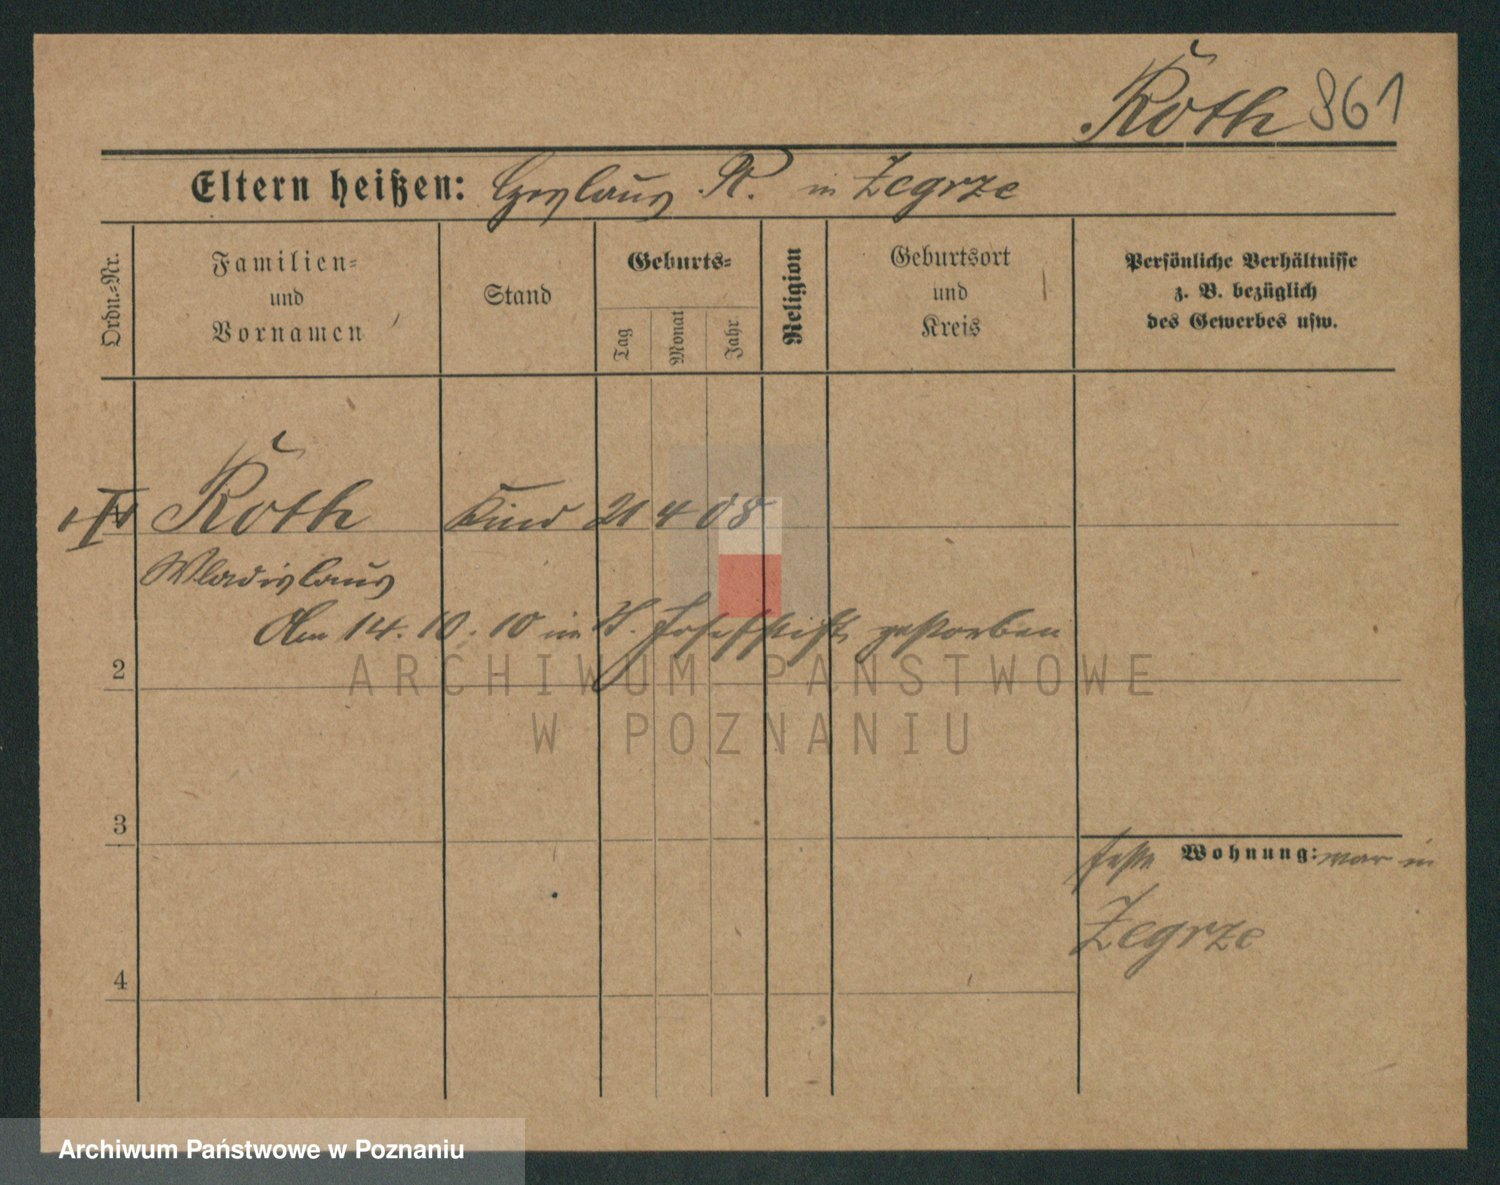 Roth 861
Eltern heißen: Czeslaus R. in Zegrze
Ordn.-Nr.
Familien-
und
Vornamen
Stand
Geburts-
Tag
Monat
Jahr
Religion
Geburtsort
und
Kreis
Persönliche Verhältnisse
z. B. bezüglich
des Gewerbes usw.
Roth Kind 21 4 08
Wladislaus
Am 14. 10. 10 im St. Josefstift gestorben
2
3
4
Wohnung: war in
Zegrze
ARCHIWUM PAŃSTWOWE
W POZNANIU
Archiwum Państwowe w Poznaniu